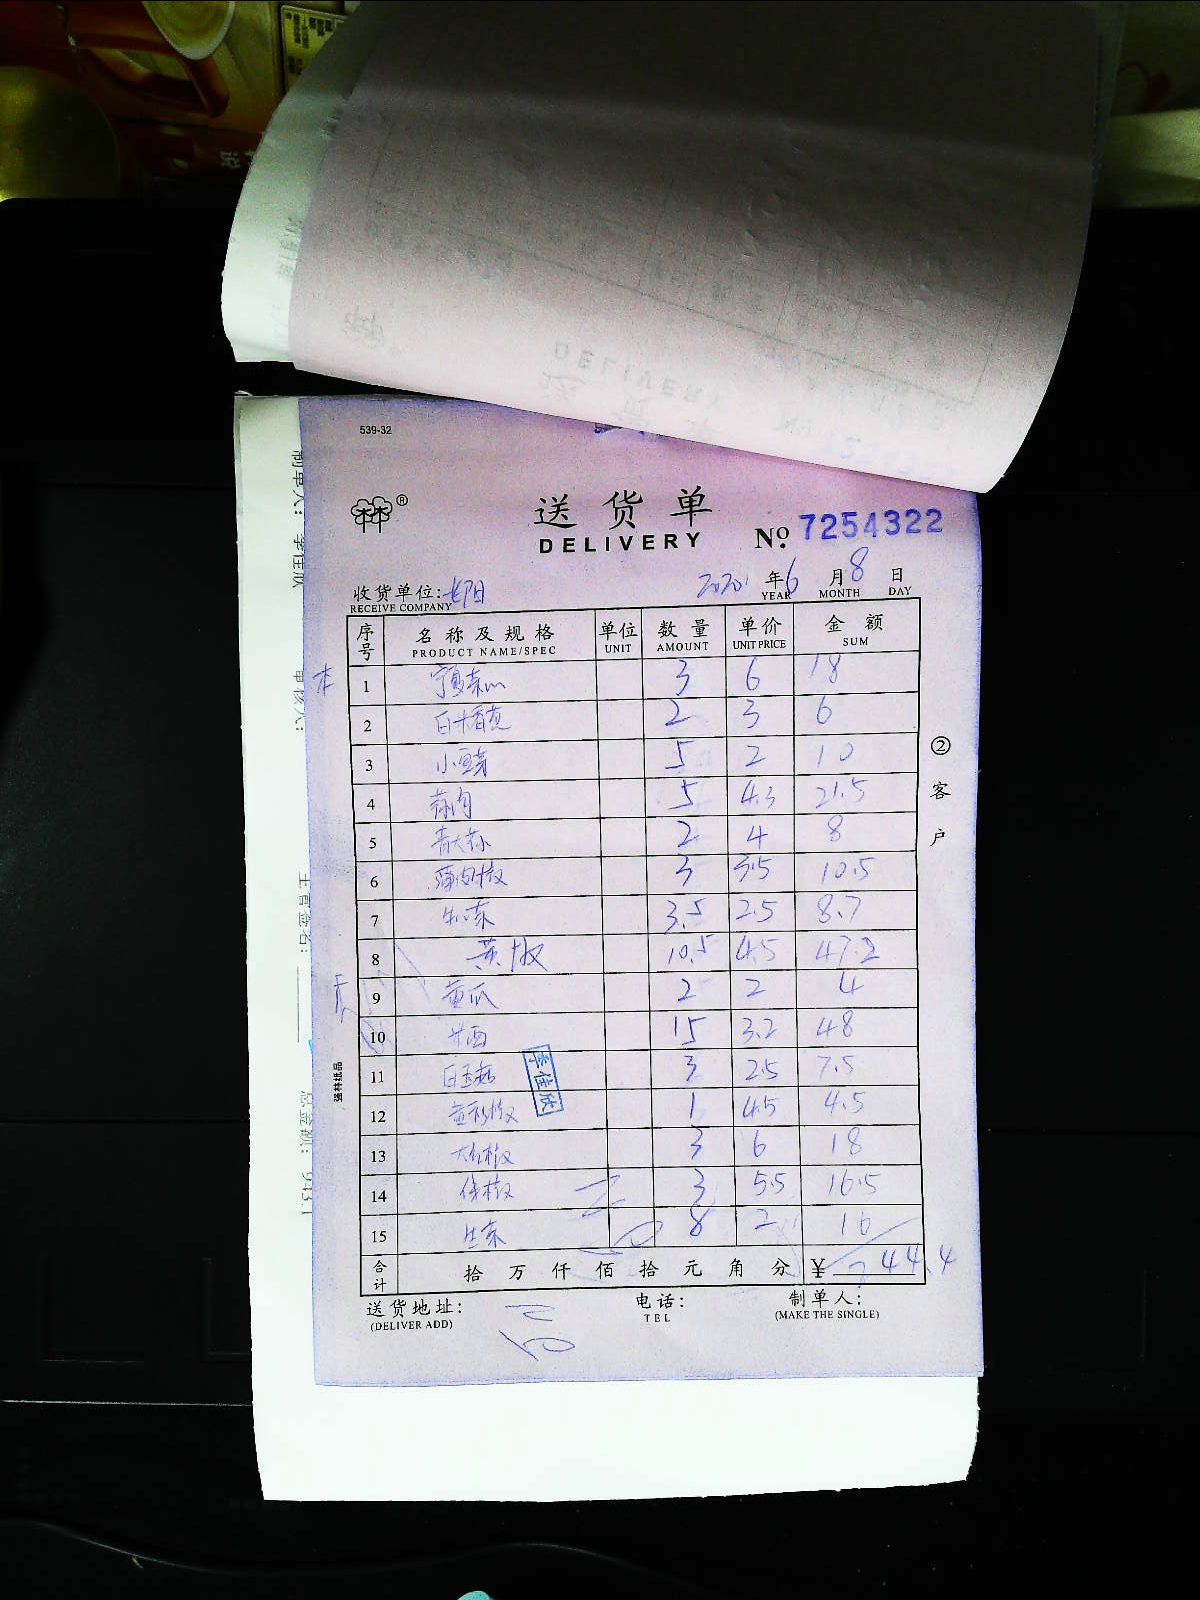 539-32
送货单
DELIVERY
№ 7254322
收货单位:
RECEIVE COMPANY
2020 年 6 月 8 日
YEAR MONTH DAY
序号 名称及规格 单位 数量 单价 金额
PRODUCT NAME/SPEC UNIT AMOUNT UNIT PRICE SUM
1 宁夏菜心 3 6 18
2 白木香芫 2 3 6
3 小豆芽 5 2 10
4 蒜肉 5 4.3 21.5
5 青大蒜 2 4 8
6 薄肉椒 3 3.5 10.5
7 生菜 3.5 2.5 8.7
8 黄椒 10.5 4.5 47.2
9 黄瓜 2 2 4
10 15 3.2 48
11 白玉菇 3 2.5 7.5
12 1 4.5 4.5
13 大红椒 3 6 18
14 3 5.5 16.5
15 生菜 8 2 16
合计 拾万仟佰拾元角分 ¥ 244.4
送货地址: 电话: 制单人:
(DELIVER ADD) TEL (MAKE THE SINGLE)
② 客户
李佳欣
强林纸品
制单人: 李佳欣
审核人:
主管签名:
总金额: 943.1